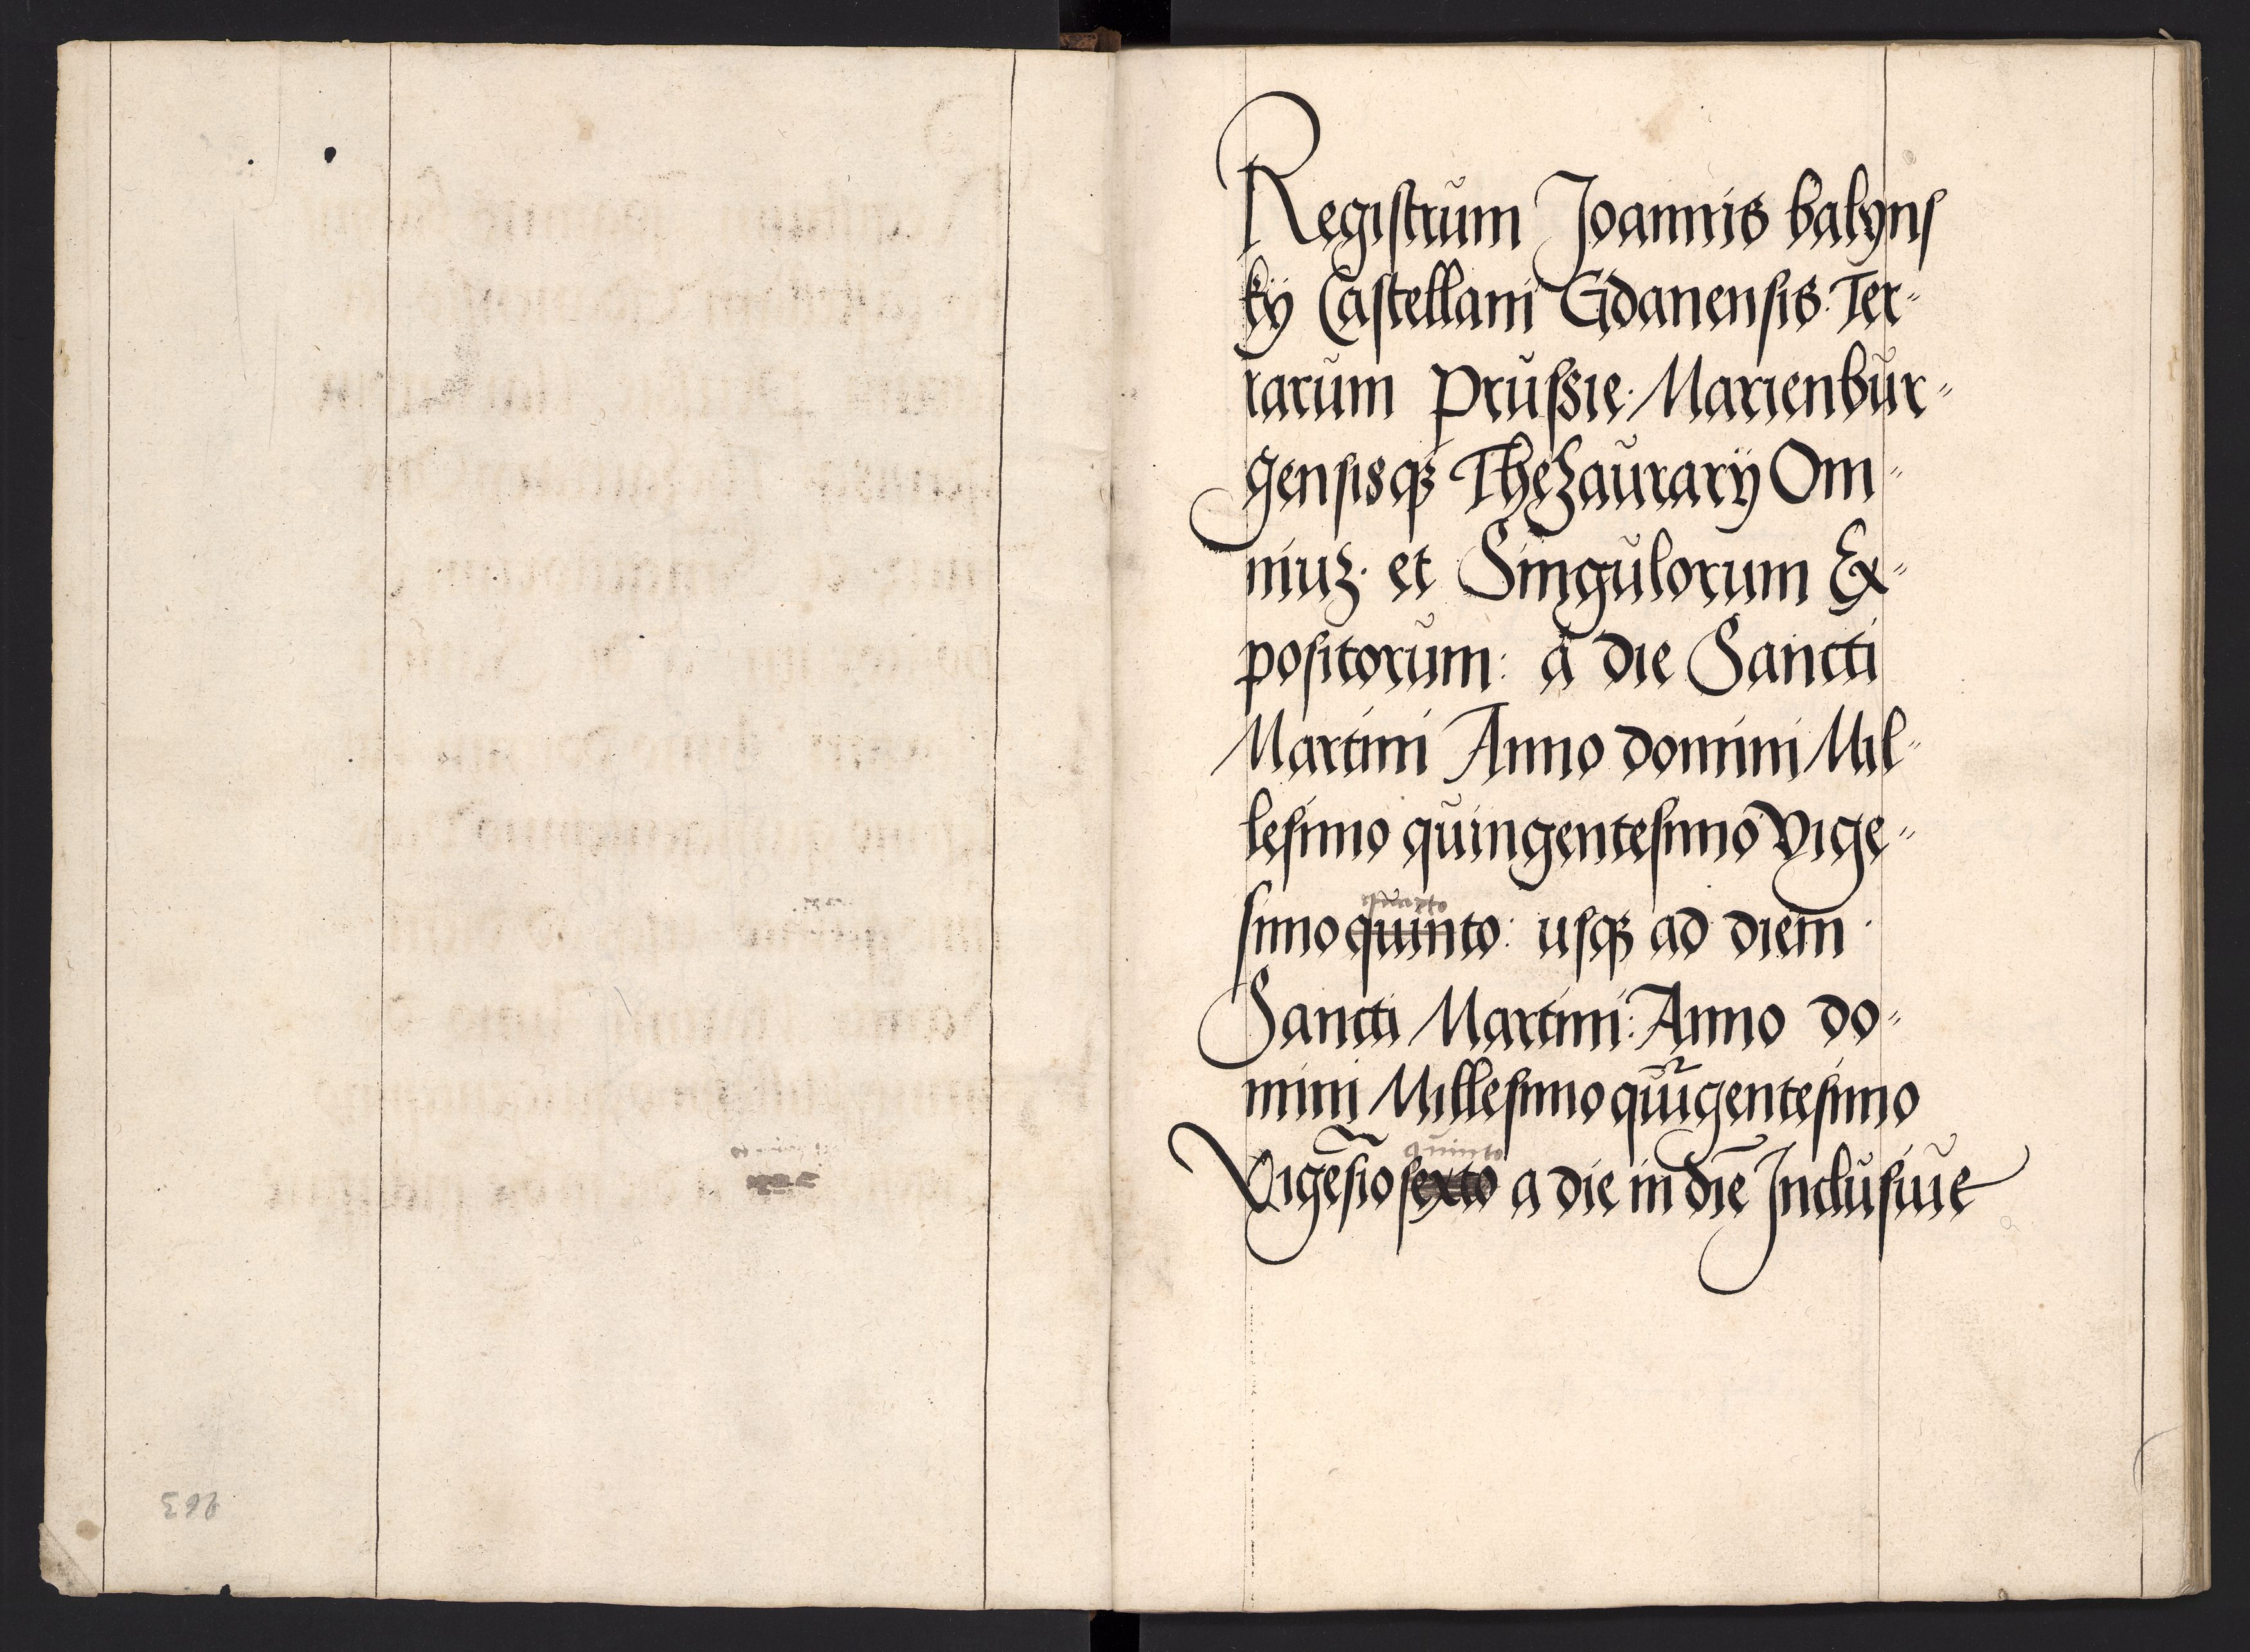 Registrum Joannis balyns
ky Castellani Gdanensis. Ter-
rarum prussie. Marienbur-
gensisqꝫ Thezaurarÿ Om-
niuꝫ. et Singulorum Ex-
positorum: a die Sancti
Martini Anno domini Mil-
lesimo quingentesimo vige-
quarto
simo quinto: usqꝫ ad diem
Sancti Martini: Anno do-
mini Millesimo quīgentesimo
quinto
Vigesīo sexto a die in diē Inclusiue
263